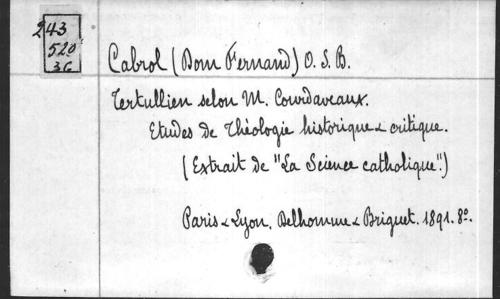 243
520
36
Cabrol (Dom Fernand) O. S. B.
Tertullien selon M. Courdaveaux.
Etudes de Théologie historique & critique.
(Extrait de "La Science catholique".)
Paris & Lyon. Delhomme & Briguet. 1891. 8º.